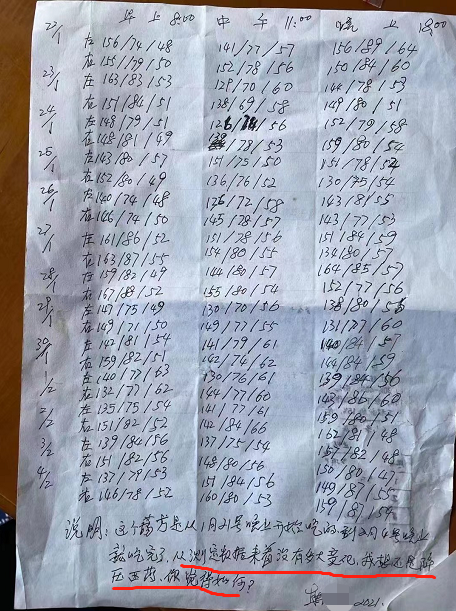 22/1 早上8:00 中午11:00 晚上18:00
左156/74/48 141/77/57 156/89/64
右155/79/50 152/78/56 150/84/60
23/1 左163/83/53 129/70/60 144/78/53
右151/84/51 138/69/58 149/80/51
24/1 左148/79/51 126/74/56 152/79/58
右148/81/49 /78/53 159/80/54
25/1 左143/80/57 151/75/50 151/78/52
右152/80/49 136/76/52 130/75/54
26/1 左140/74/48 126/72/58 143/81/55
右166/74/50 145/78/57 143/77/53
27/1 左161/86/52 151/78/56 151/84/59
右163/87/55 154/80/55 134/80/57
28/1 左159/82/49 144/80/57 164/85/57
右167/88/52 155/80/54 152/77/56
29/1 左147/75/49 130/70/56 138/80/56
右149/71/50 149/77/55 131/77/60
30/1 左142/81/54 141/79/61 140/84/57
右159/82/51 142/74/62 144/84/59
1/2 左140/77/63 130/76/61 139/84/56
右132/77/62 144/77/60 143/86/60
2/2 左135/75/54 141/77/61 159/80/51
右151/82/52 142/84/66 162/81/48
3/2 左139/84/56 137/75/54 157/82/48
右151/82/56 148/80/56 150/80/47
4/2 左137/79/53 151/84/56 149/87/55
右146/78/52 160/80/53 159/87/59
说明：这个药方是从1月21号晚上开始吃的到2月4号晚上
就吃完了，从测定数据来看没有多大变化，我想还是
压西药，你觉得如何？
2021.